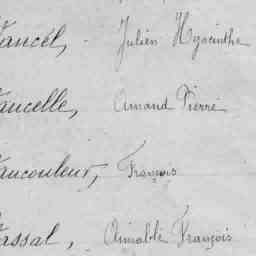 Vancel, - Julien Hyacinthe
Vaucelle, Amand Pierre
Vaucouleur, François
Vassal, Aimable François